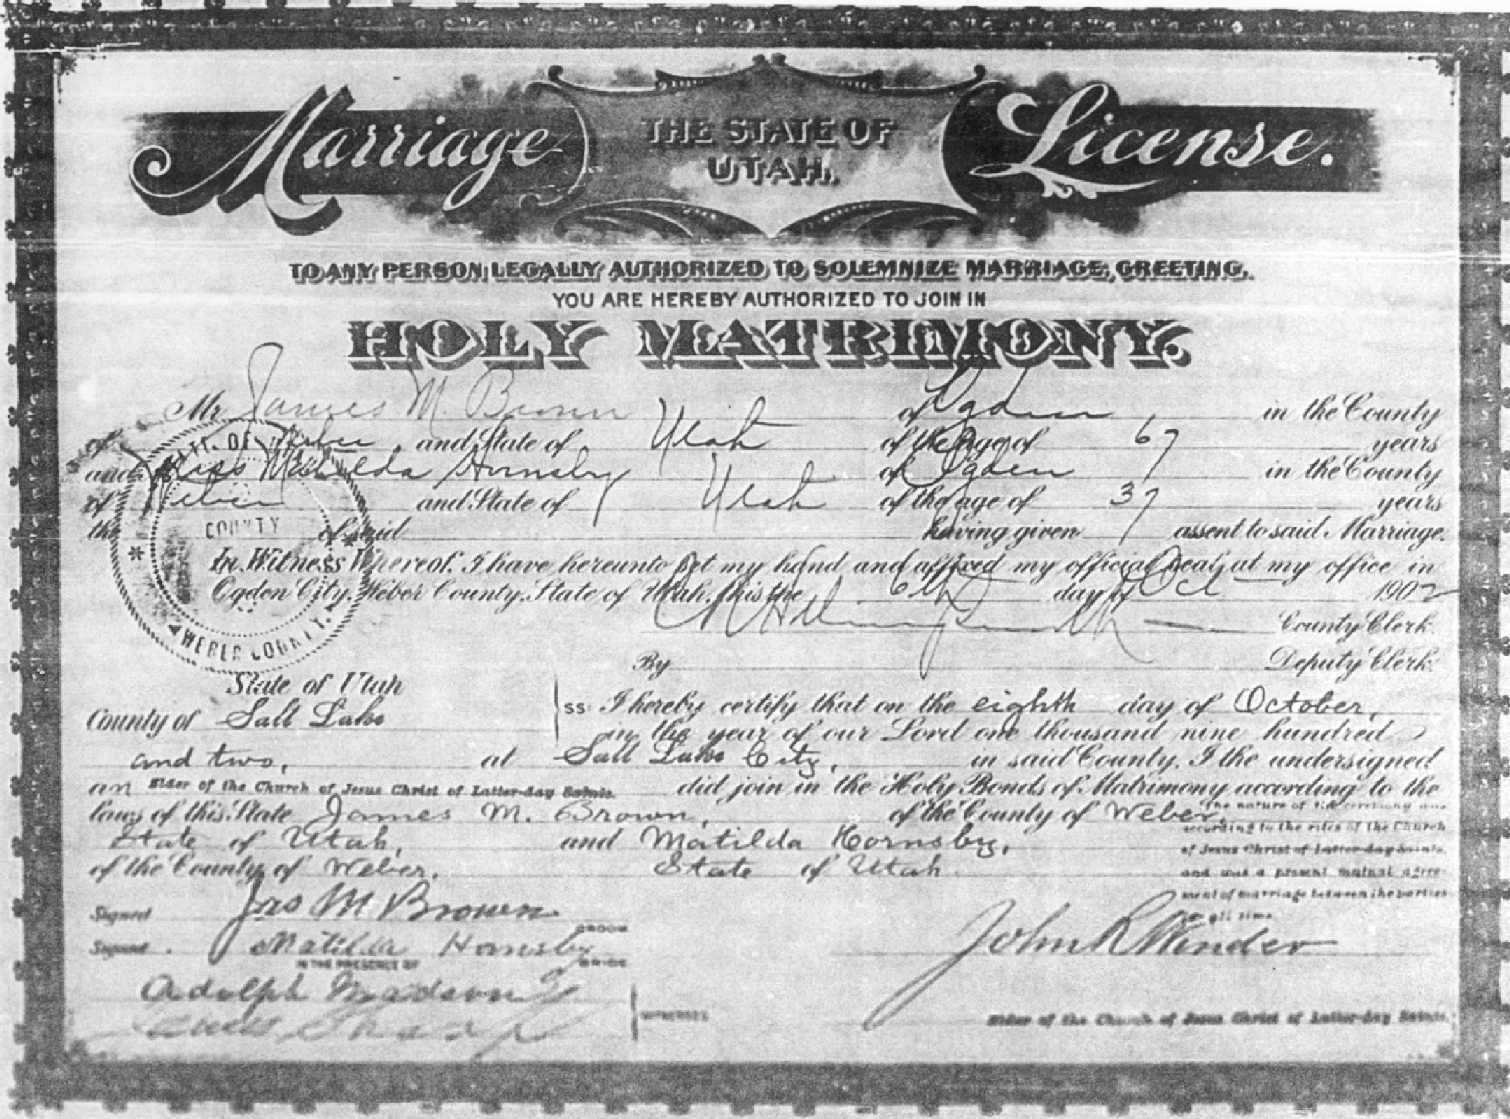 Marriage THE STATE OF UTAH. License.
TO ANY PERSON LEGALLY AUTHORIZED TO SOLEMNIZE MARRIAGE, GREETING.
YOU ARE HEREBY AUTHORIZED TO JOIN IN
HOLY MATRIMONY.
Mr. James M. Brown of Ogden in the County
of Weber and State of Utah of the Age of 67 years
and Miss Matilda Hornsby of Ogden in the County
of Weber and State of Utah of the age of 37 years
the of said having given assent to said Marriage.
In Witness Whereof, I have hereunto set my hand and affixed my official seal at my office in
Ogden City, Weber County, State of Utah, this the 6th day of Oct 1902
County Clerk.
By Deputy Clerk.
COUNTY
WEBER COUNTY.
State of Utah
County of Salt Lake
ss: I hereby certify that on the eighth day of October,
in the year of our Lord one thousand nine hundred
and two, at Salt Lake City, in said County, I the undersigned
an Elder of the Church of Jesus Christ of Latter-day Saints. did join in the Holy Bonds of Matrimony according to the
laws of this State James M. Brown, of the County of Weber,
State of Utah, and Matilda Hornsby,
of the County of Weber. State of Utah.
The nature of the ceremony was
according to the rites of the Church
of Jesus Christ of Latter-day Saints,
and was a present mutual agree-
ment of marriage between the parties
for all time.
Signed Jas M Brown GROOM
Signed Matilda Hornsby BRIDE
IN THE PRESENCE OF
Adolph Madson
WITNESSES
John R Winder
Elder of the Church of Jesus Christ of Latter-day Saints.